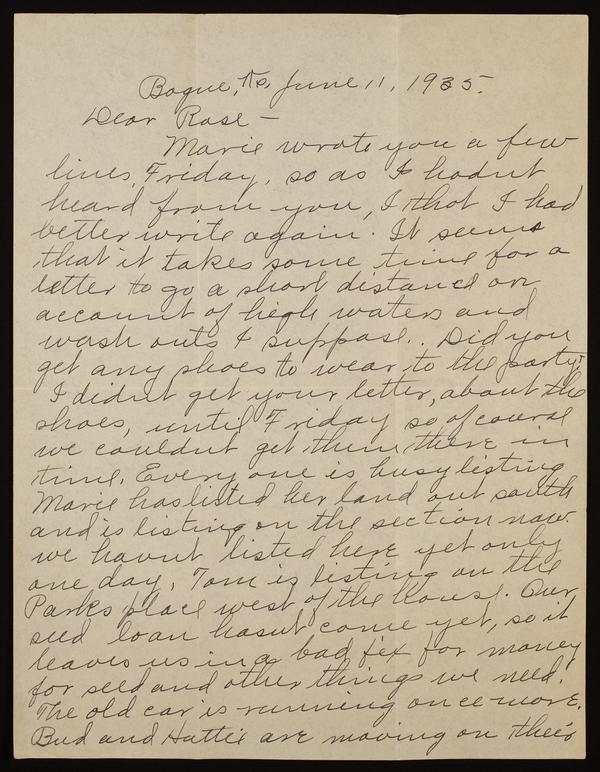 Bogue, Ks, June 11, 1935.
Dear Rose —
Marie wrote you a few
lines, Friday, so as I hadnt
heard from you, I thot I had
better write again. It seems
that it takes some time for a
letter to go a short distance on
account of high waters and
wash outs I suppose.. Did you
get any shoes to wear to the party?
I didnt get your letter, about the
shoes, until Friday so of course
we couldnt get them there in
time. Every one is busy listing
Marie has listed her land out south
and is listing on the section now.
we havnt listed here yet only
one day, Tom is listing on the
Parks place west of the house. Our
seed loan hasnt come yet, so it
leaves us in a bad fix for money
for seed and other things we need.
The old car is running once more.
Bud and Hattie are moving on their